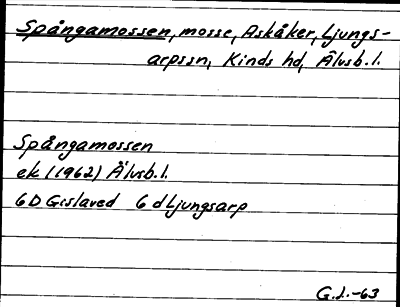 Spångamossen, mosse, Askåker, Ljungs-
arpssn, Kinds hd, Älvsb.l.
Spångamossen
ek (1962) Älvsb.l.
6D Gislaved 6d Ljungsarp
G.L.-63